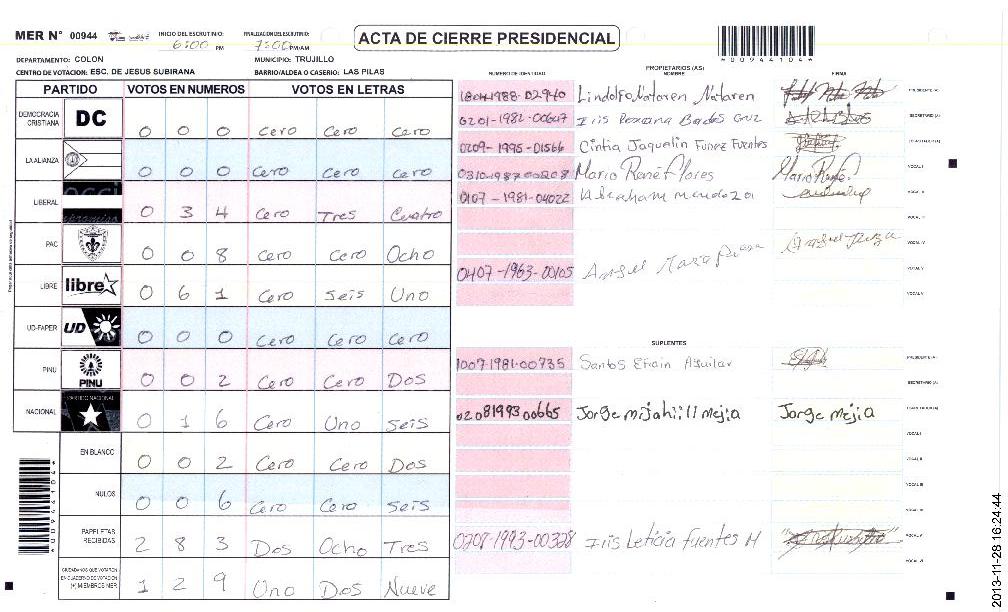 MER N° 00944 INICIO DEL ESCRUTINIO: 6:00 PM FINALIZACION DEL ESCRUTINIO: 7:00 PM/AM
ACTA DE CIERRE PRESIDENCIAL
*00944104*
DEPARTAMENTO: COLON MUNICIPIO: TRUJILLO
CENTRO DE VOTACION: ESC. DE JESUS SUBIRANA BARRIO/ALDEA O CASERIO: LAS PILAS
PARTIDO VOTOS EN NUMEROS VOTOS EN LETRAS
DEMOCRACIA CRISTIANA DC 0 0 0 Cero Cero Cero
LA ALIANZA 0 0 0 Cero Cero Cero
LIBERAL 0 3 4 Cero Tres Cuatro
PAC 0 0 8 Cero Cero Ocho
LIBRE libre 0 6 1 Cero Seis Uno
UD-FAPER UD 0 0 0 Cero Cero Cero
PINU PINU 0 0 2 Cero Cero Dos
NACIONAL PARTIDO NACIONAL 0 1 6 Cero Uno Seis
EN BLANCO 0 0 2 Cero Cero Dos
NULOS 0 0 6 Cero Cero Seis
PAPELETAS RECIBIDAS 2 8 3 Dos Ocho Tres
CIUDADANOS QUE VOTARON EN CUADERNO DE VOTACION (+) MIEMBROS MER 1 2 9 Uno Dos Nueve
PROPIETARIOS (AS)
NUMERO DE IDENTIDAD NOMBRE FIRMA
1804-1988-02940 Lindolfo Nataren Nataren PRESIDENTE (A)
0201-1982-00607 Iris Roxana SECRETARIO (A)
0209-1995-01566 Cintia Jaquelin Funez Fuentes
Mario René Flores Mario René VOCAL I
0107-1981-04022 VOCAL II
VOCAL III
VOCAL IV
0407-1963-00105 Angel VOCAL V
VOCAL VI
SUPLENTES
1007-1981-00735 Santos Efrain Aguilar PRESIDENTE (A)
SECRETARIO (A)
0208199300665 Jorge Mejia Jorge Mejia
VOCAL I
VOCAL II
VOCAL III
VOCAL IV
0207-1993-00328 Iris Leticia Fuentes M VOCAL V
VOCAL VI
*00944104*
2013-11-28 16:24:44